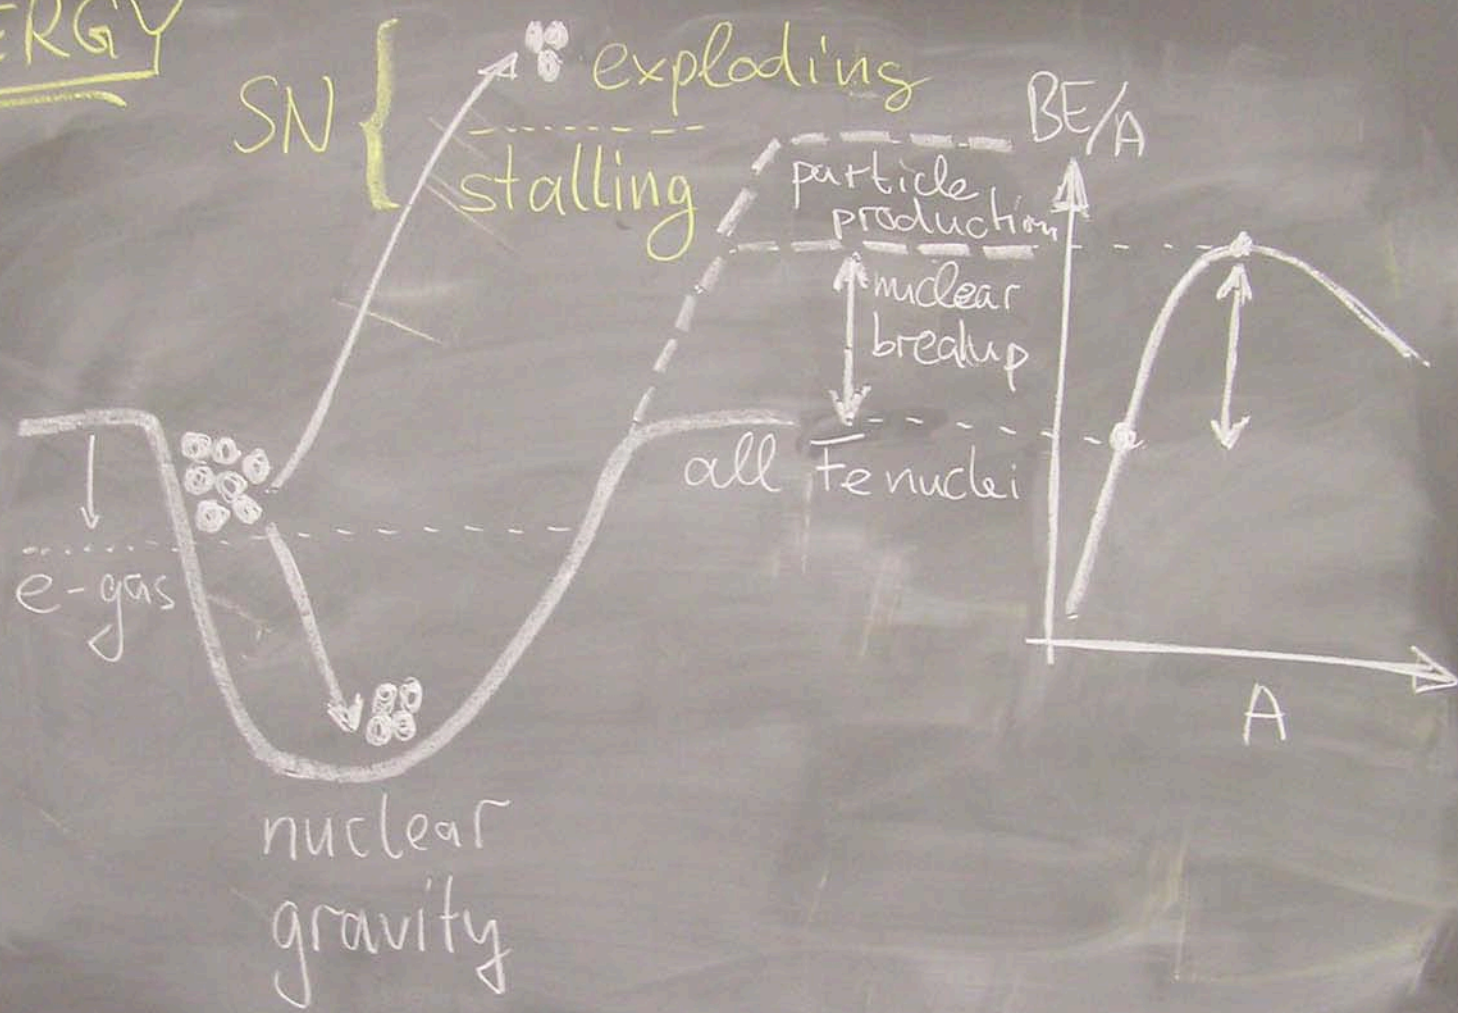 ERGY
SN { exploding
stalling
BE/A
particle
production
nuclear
breakup
all Fe nuclei
e-gas
A
nuclear
gravity